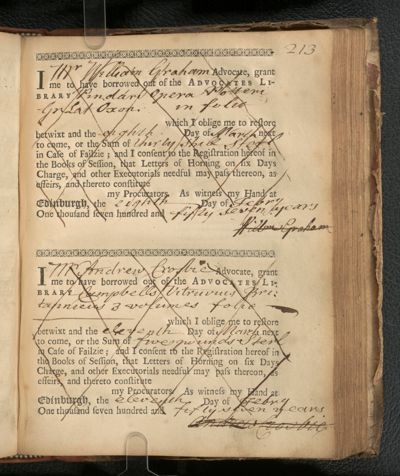 213
I Mr William Graham Advocate, grant
me to have borrowed out of the ADVOCATES LI-
BRARY Pindari Opera
Gr: Lat Oxon: in folio
which I oblige me to restore
betwixt and the eighth Day of May next
to come, or the Sum of thirty Sterl
in Case of Failzie; and I consent to the Registration hereof in
the Books of Session, that Letters of Horning on six Days
Charge, and other Executorials needful may pass thereon, as
effeirs, and thereto constitute
my Procurators As witness my Hand at
Edinburgh, the eighth Day of Febry
One thousand seven hundred and fifty seven years
Willm Graham
I Mr Andrew Crosbie Advocate, grant
me to have borrowed out of the ADVOCATES LI-
BRARY Campbells Vitruvius Bri-
tannicus 3 volumes folio
which I oblige me to restore
betwixt and the eleventh Day of May next
to come, or the Sum of two pounds Sterl
in Case of Failzie; and I consent to the Registration hereof in
the Books of Session, that Letters of Horning on six Days
Charge, and other Executorials needful may pass thereon, as
effeirs, and thereto constitute
my Procurators As witness my Hand at
Edinburgh, the eleventh Day of Febry
One thousand seven hundred and fifty seven years
Andrew Crosbie